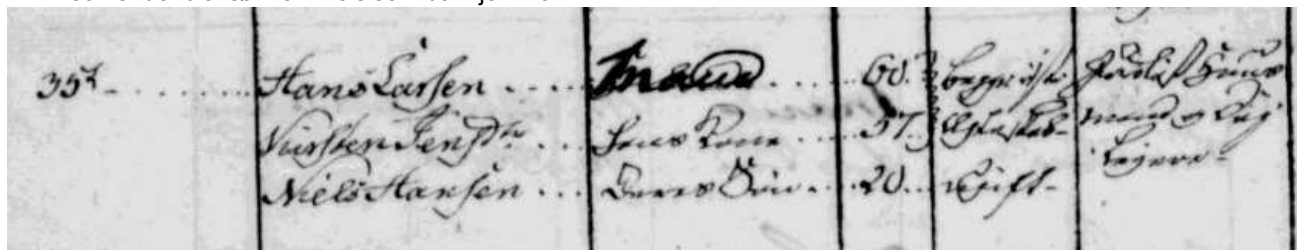 35te Hans Larsen Mand 60 begge i 1ste Jordløs Huus
Kirsten Jensdtr hans Kone 57 Ægteskab mand og Dag
Niels Hansen deres Søn 20 ugift lejere